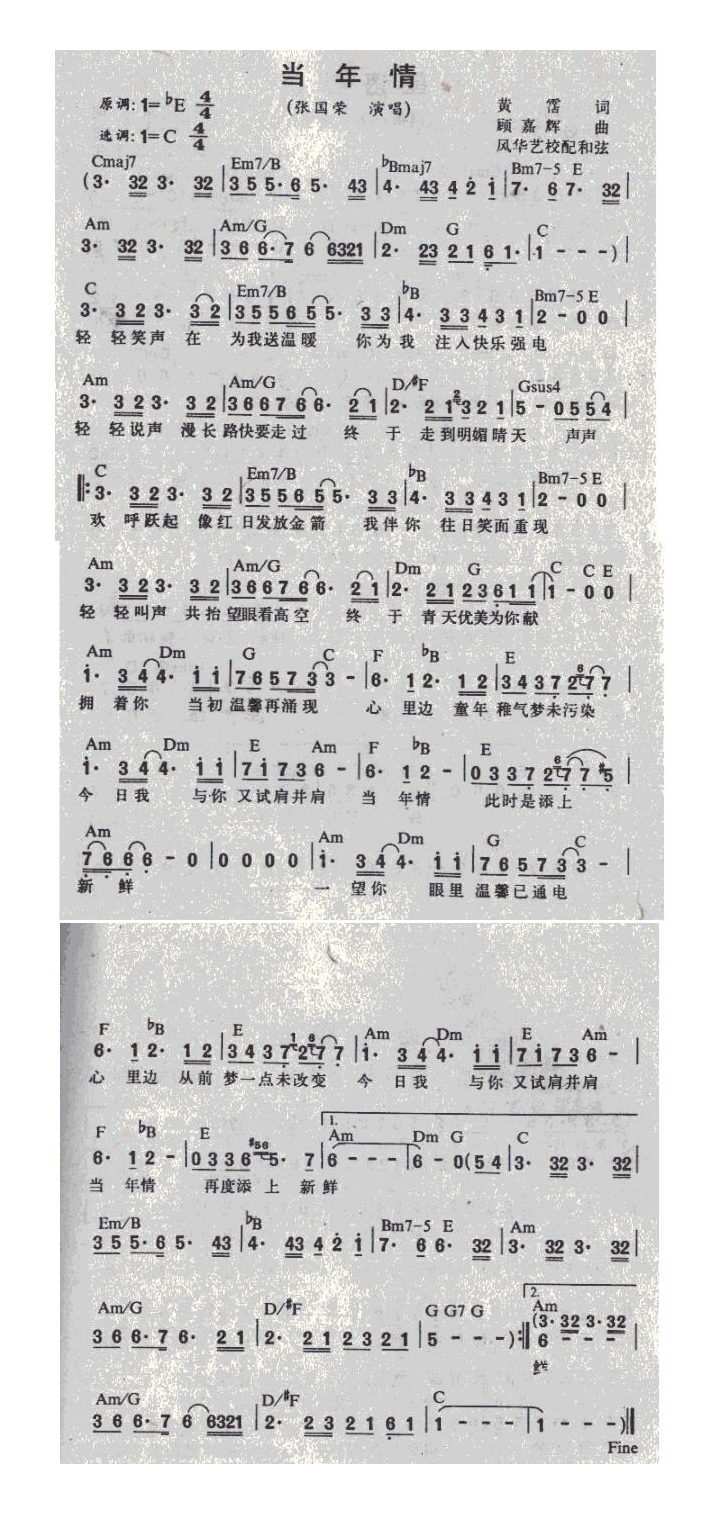 当 年 情
原调: 1= ♭E 4/4
(张国荣 演唱)
黄 霑 词
选调: 1= C 4/4
顾 嘉 辉 曲
风华艺校配和弦
Cmaj7 Em7/B ♭Bmaj7 Bm7-5 E
(3· 32 3· 32 | 3 5 5· 6 5· 43 | 4· 43 4 2 i | 7· 6 7· 32 |
Am Am/G Dm G C
3· 32 3· 32 | 3 6 6· 7 6 6321 | 2· 23 2 1 6 1· | 1 - - - ) |
C Em7/B ♭B Bm7-5 E
3· 3 2 3· 3 2 | 3 5 5 6 5 5· 3 3 | 4· 3 3 4 3 1 | 2 - 0 0 |
轻 轻笑声 在 为我送温暖 你为 我 注入快乐强电
Am Am/G D/#F Gsus4
3· 3 2 3· 3 2 | 3 6 6 7 6 6· 2 1 | 2· 2 1 2 3 2 1 | 5 - 0 5 5 4 |
轻 轻说声 漫长 路快要走过 终 于 走到明媚晴天 声声
C Em7/B ♭B Bm7-5 E
‖: 3· 3 2 3· 3 2 | 3 5 5 6 5 5· 3 3 | 4· 3 3 4 3 1 | 2 - 0 0 |
欢 呼跃起 像红 日发放金箭 我伴你 往日笑面重现
Am Am/G Dm G C C E
3· 3 2 3· 3 2 | 3 6 6 7 6 6· 2 1 | 2· 2 1 2 3 6 1 1 | 1 - 0 0 |
轻 轻叫声 共抬 望眼看高空 终 于 青天优美为你献
Am Dm G C F ♭B E
i· 3 4 4· i i | 7 6 5 7 3 3 - | 6· 1 2· 1 2 | 3 4 3 7 2 6 7 7 |
拥 着你 当初 温馨再涌现 心 里边 童年 稚气梦未污染
Am Dm E Am F ♭B E
i· 3 4 4· i i | 7 i 7 3 6 - | 6· 1 2 - | 0 3 3 7 2 6 7 7 #5 |
今 日我 与你 又试肩并肩 当 年情 此时是添上
Am Am Dm G C
7 6 6 6 - 0 | 0 0 0 0 | i· 3 4 4· i i | 7 6 5 7 3 3 - |
新 鲜 一 望你 眼里 温馨已通电
F ♭B E Am Dm E Am
6· 1 2· 1 2 | 3 4 3 7 1 2 6 7 7 | i· 3 4 4· i i | 7 i 7 3 6 - |
心 里边 从前 梦一点未改变 今 日我 与你 又试肩并肩
1.
F ♭B E Am Dm G C
6· 1 2 - | 0 3 3 6 #56 5· 7 | 6 - - - | 6 - 0 (5 4 | 3· 32 3· 32 |
当 年情 再度添 上 新 鲜
Em/B ♭B Bm7-5 E Am
3 5 5· 6 5· 43 | 4· 43 4 2 i | 7· 6 6· 32 | 3· 32 3· 32 |
2.
Am/G D/#F G G7 G Am
(3· 32 3· 32
3 6 6· 7 6· 2 1 | 2· 2 1 2 3 2 1 | 5 - - - ) :‖ 6 - - - |
鲜
Am/G D/#F C
3 6 6· 7 6 6321 | 2· 2 3 2 1 6 1 | 1 - - - | 1 - - - ) ‖
Fine